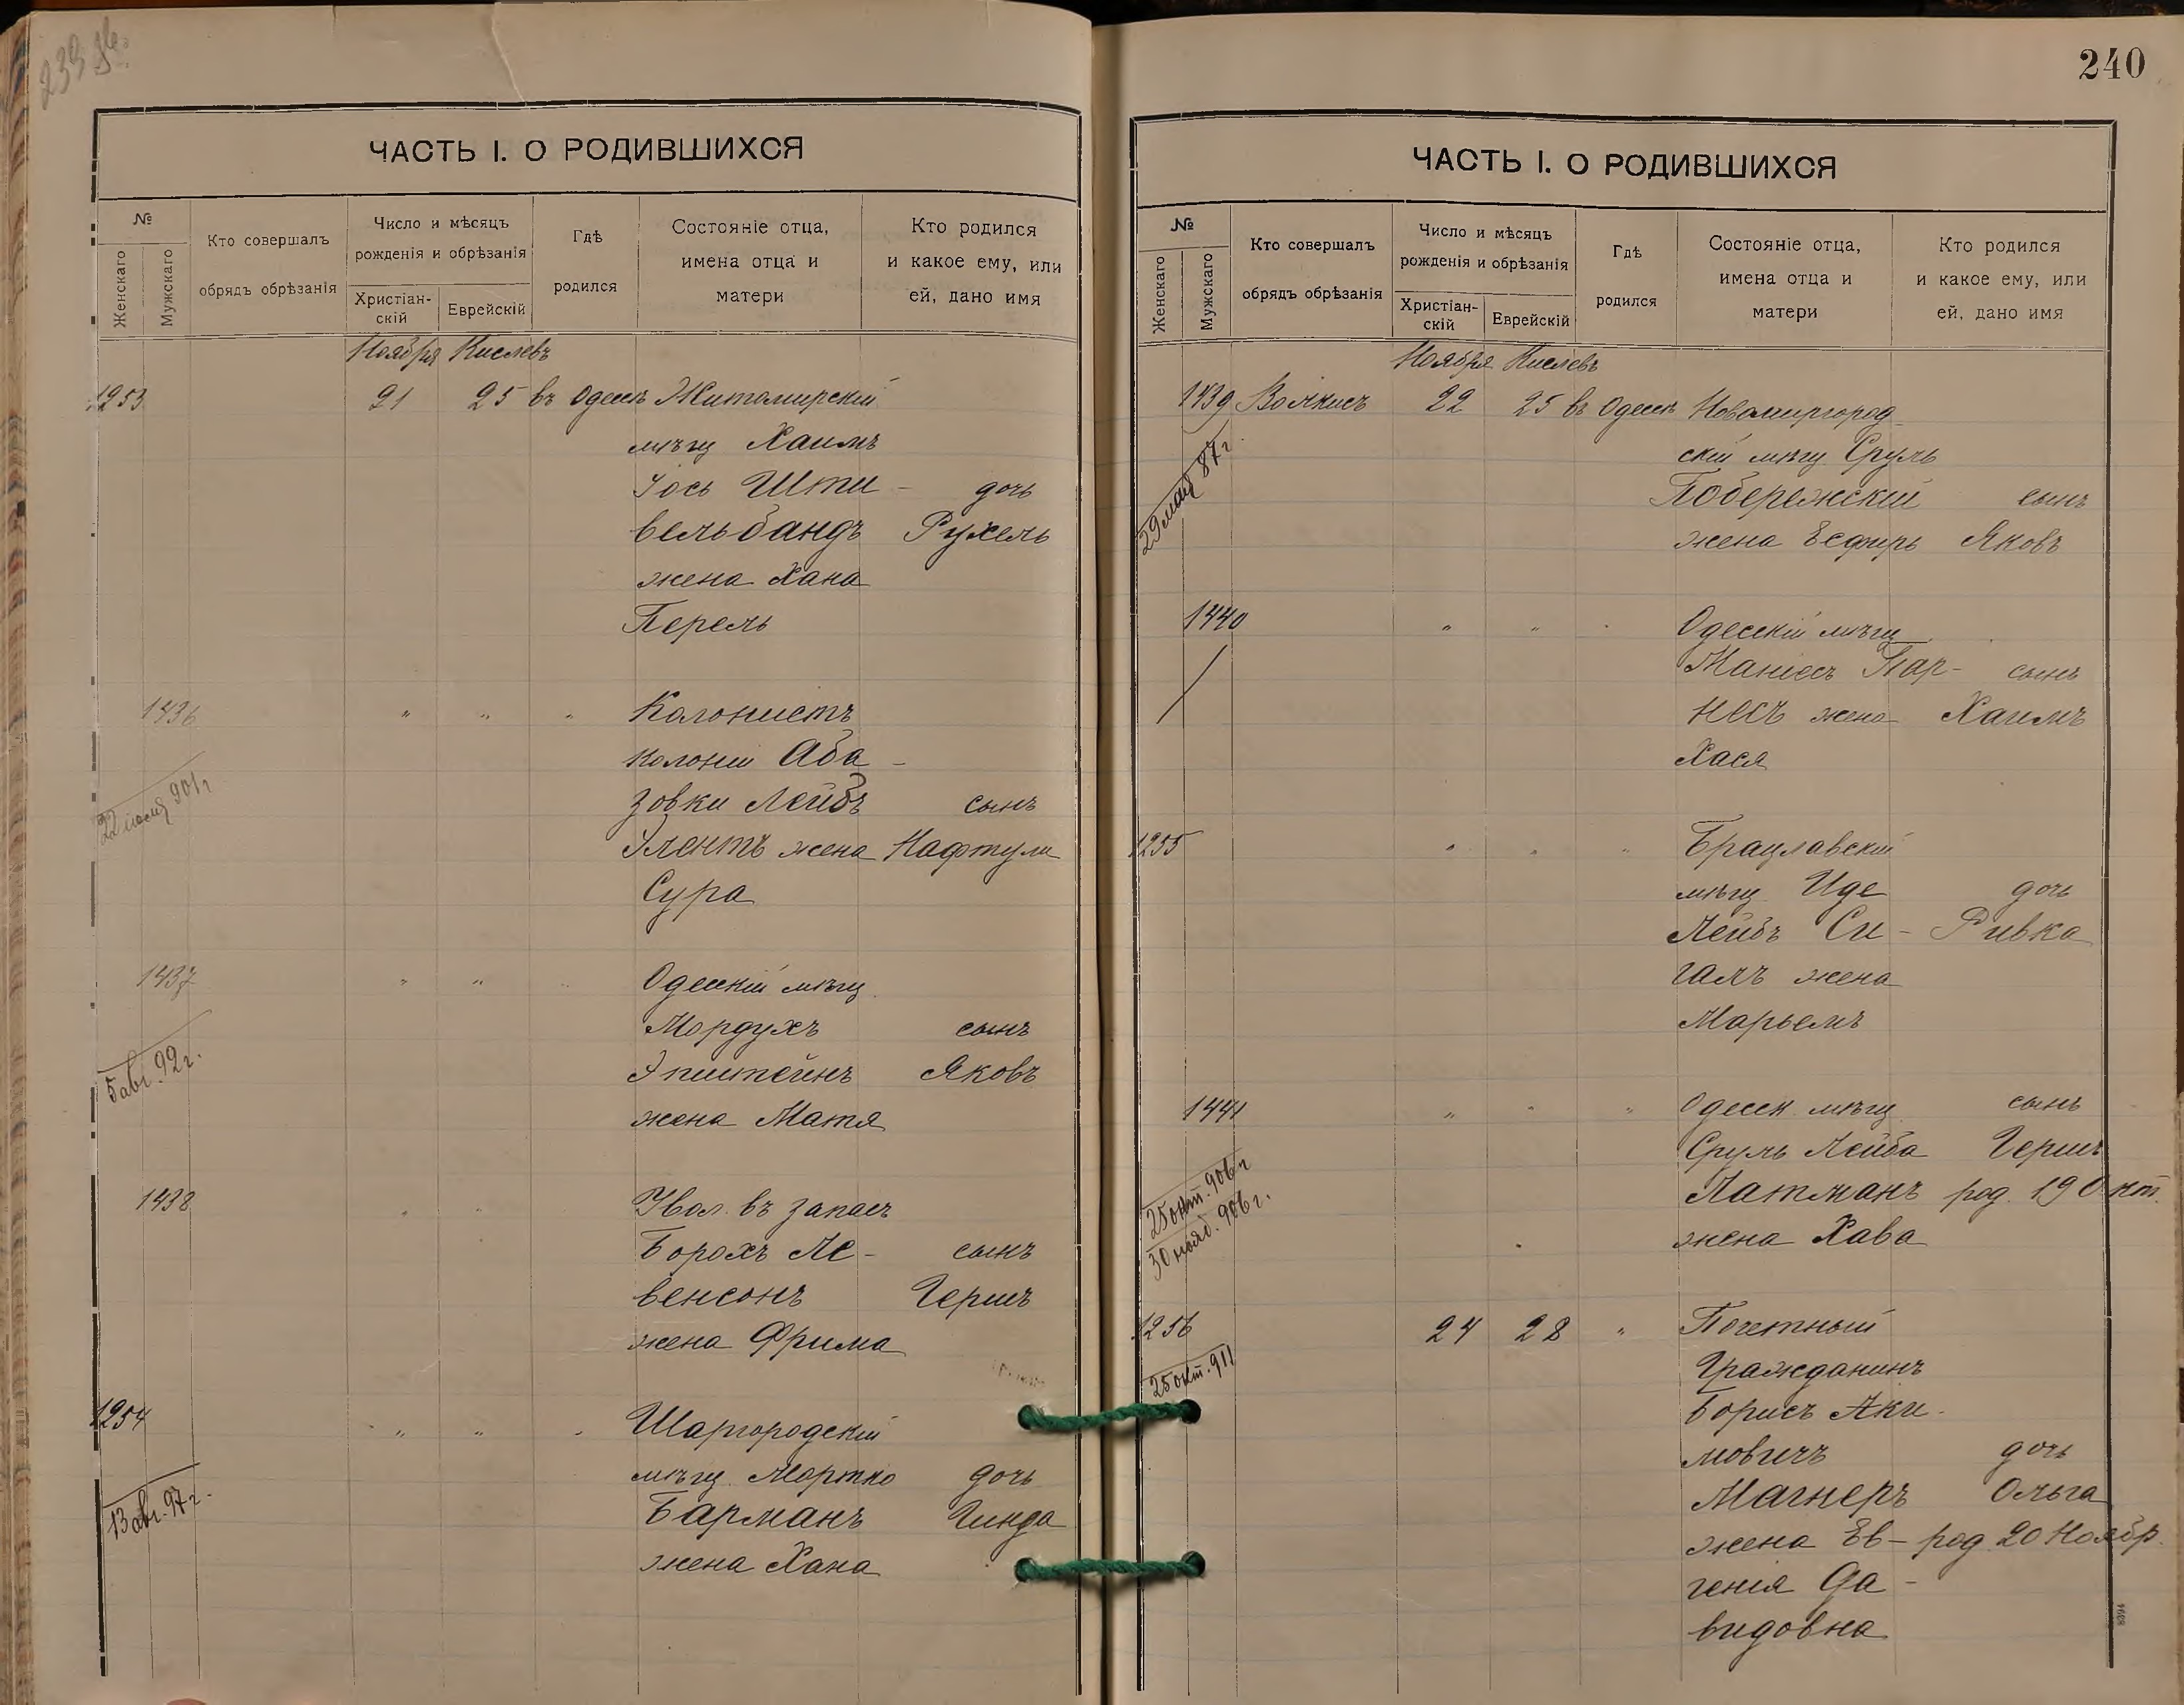 ЧАСТЬ I. О РОДИВШИХСЯ
№
Женскаго
Мужскаго
Кто совершалъ
обрядъ обрѣзанія
Число и мѣсяцъ
рожденія и обрѣзанія
Христіан-
скій
Еврейскій
Гдѣ
родился
Состояніе отца,
имена отца и
матери
Кто родился
и какое ему, или
ей, дано имя
Ноября Кислевъ
1253 21 25 въ Одессѣ Житомирскій
мѣщ Хаимъ
Іось Шти- дочь
вельбандъ Рухель
жена Хана
Перель
1436 " " " Колонистъ
колоніи Аба-
зовки Лейбъ сынъ
22 901г
Элентъ жена Нафтула
Сура
1437 " " " Одесскій мѣщ.
Мордухъ сынъ
5 авг. 92г.
Эпштейнъ Яковъ
жена Матя
1438 " " Увол. въ запасъ
Борохъ Ле- сынъ
венсонъ Гершъ
жена Фрима
1254 " " " Шаргородскій
мѣщ. Мортко дочь
13 авг. 97г.
Барманъ Гинда
жена Хана
240
ЧАСТЬ I. О РОДИВШИХСЯ
№
Женскаго
Мужскаго
Кто совершалъ
обрядъ обрѣзанія
Число и мѣсяцъ
рожденія и обрѣзанія
Христіан-
скій
Еврейскій
Гдѣ
родился
Состояніе отца,
имена отца и
матери
Кто родился
и какое ему, или
ей, дано имя
Ноября Кислевъ
1439 22 25 въ Одессѣ Новомиргород
скій мѣщ. Сруль
29 мая 87г.
Побережскій сынъ
жена Есфирь Яковъ
1440 " " " Одесскій мѣщ
Манесъ Пар- сынъ
несъ жена Хаимъ
Хася
1255 " " " Брацлавскій
мѣщ. Иде дочь
Лейбъ Си- Ривка
галъ жена
Марьемъ
1441 " " " Одесск. мѣщ сынъ
Сруль Лейба Гершъ
25 окт. 906г
Латманъ род. 19 Окт.
30 нояб. 906г.
жена Хава
1256 24 28 " Почетный
25 окт. 911
Гражданинъ
Борисъ Аки-
мовичъ дочь
Магнеръ Ольга
жена Ев- род. 20 Ноябр.
генія Да-
видовна
8394